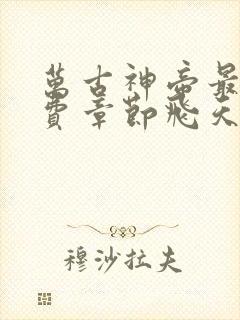 萬古神帝最
費章節飛天
穆沙拉夫